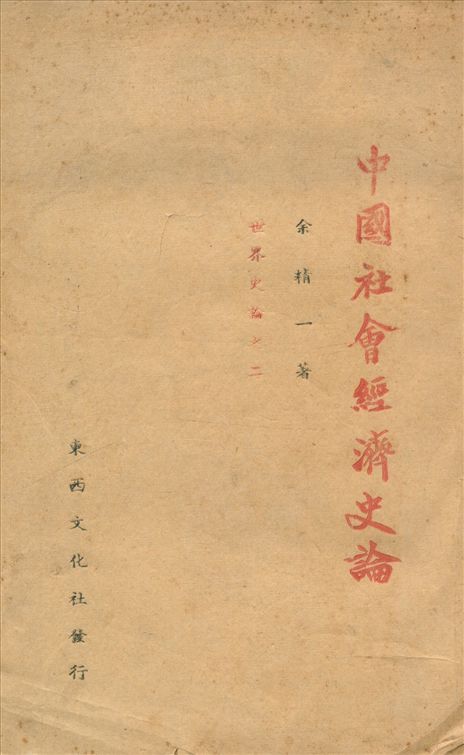 中國社會經濟史論
余精一著
世界史論之二
東西文化社發行